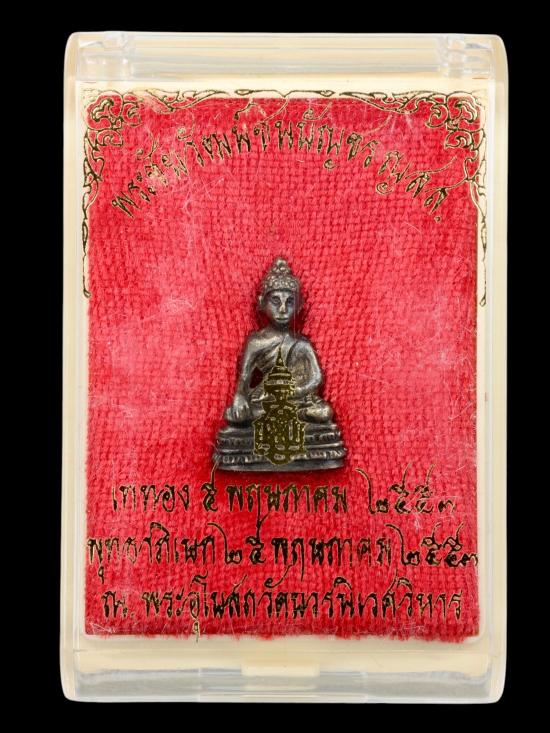 พระชัยวัฒน์ชินบัญชร ญสส.
เททอง ๕ พฤษภาคม ๒๕๕๓
พุทธาภิเษก ๒๕ พฤษภาคม ๒๕๕๓
ณ. พระอุโบสถวัดบวรนิเวศวิหาร